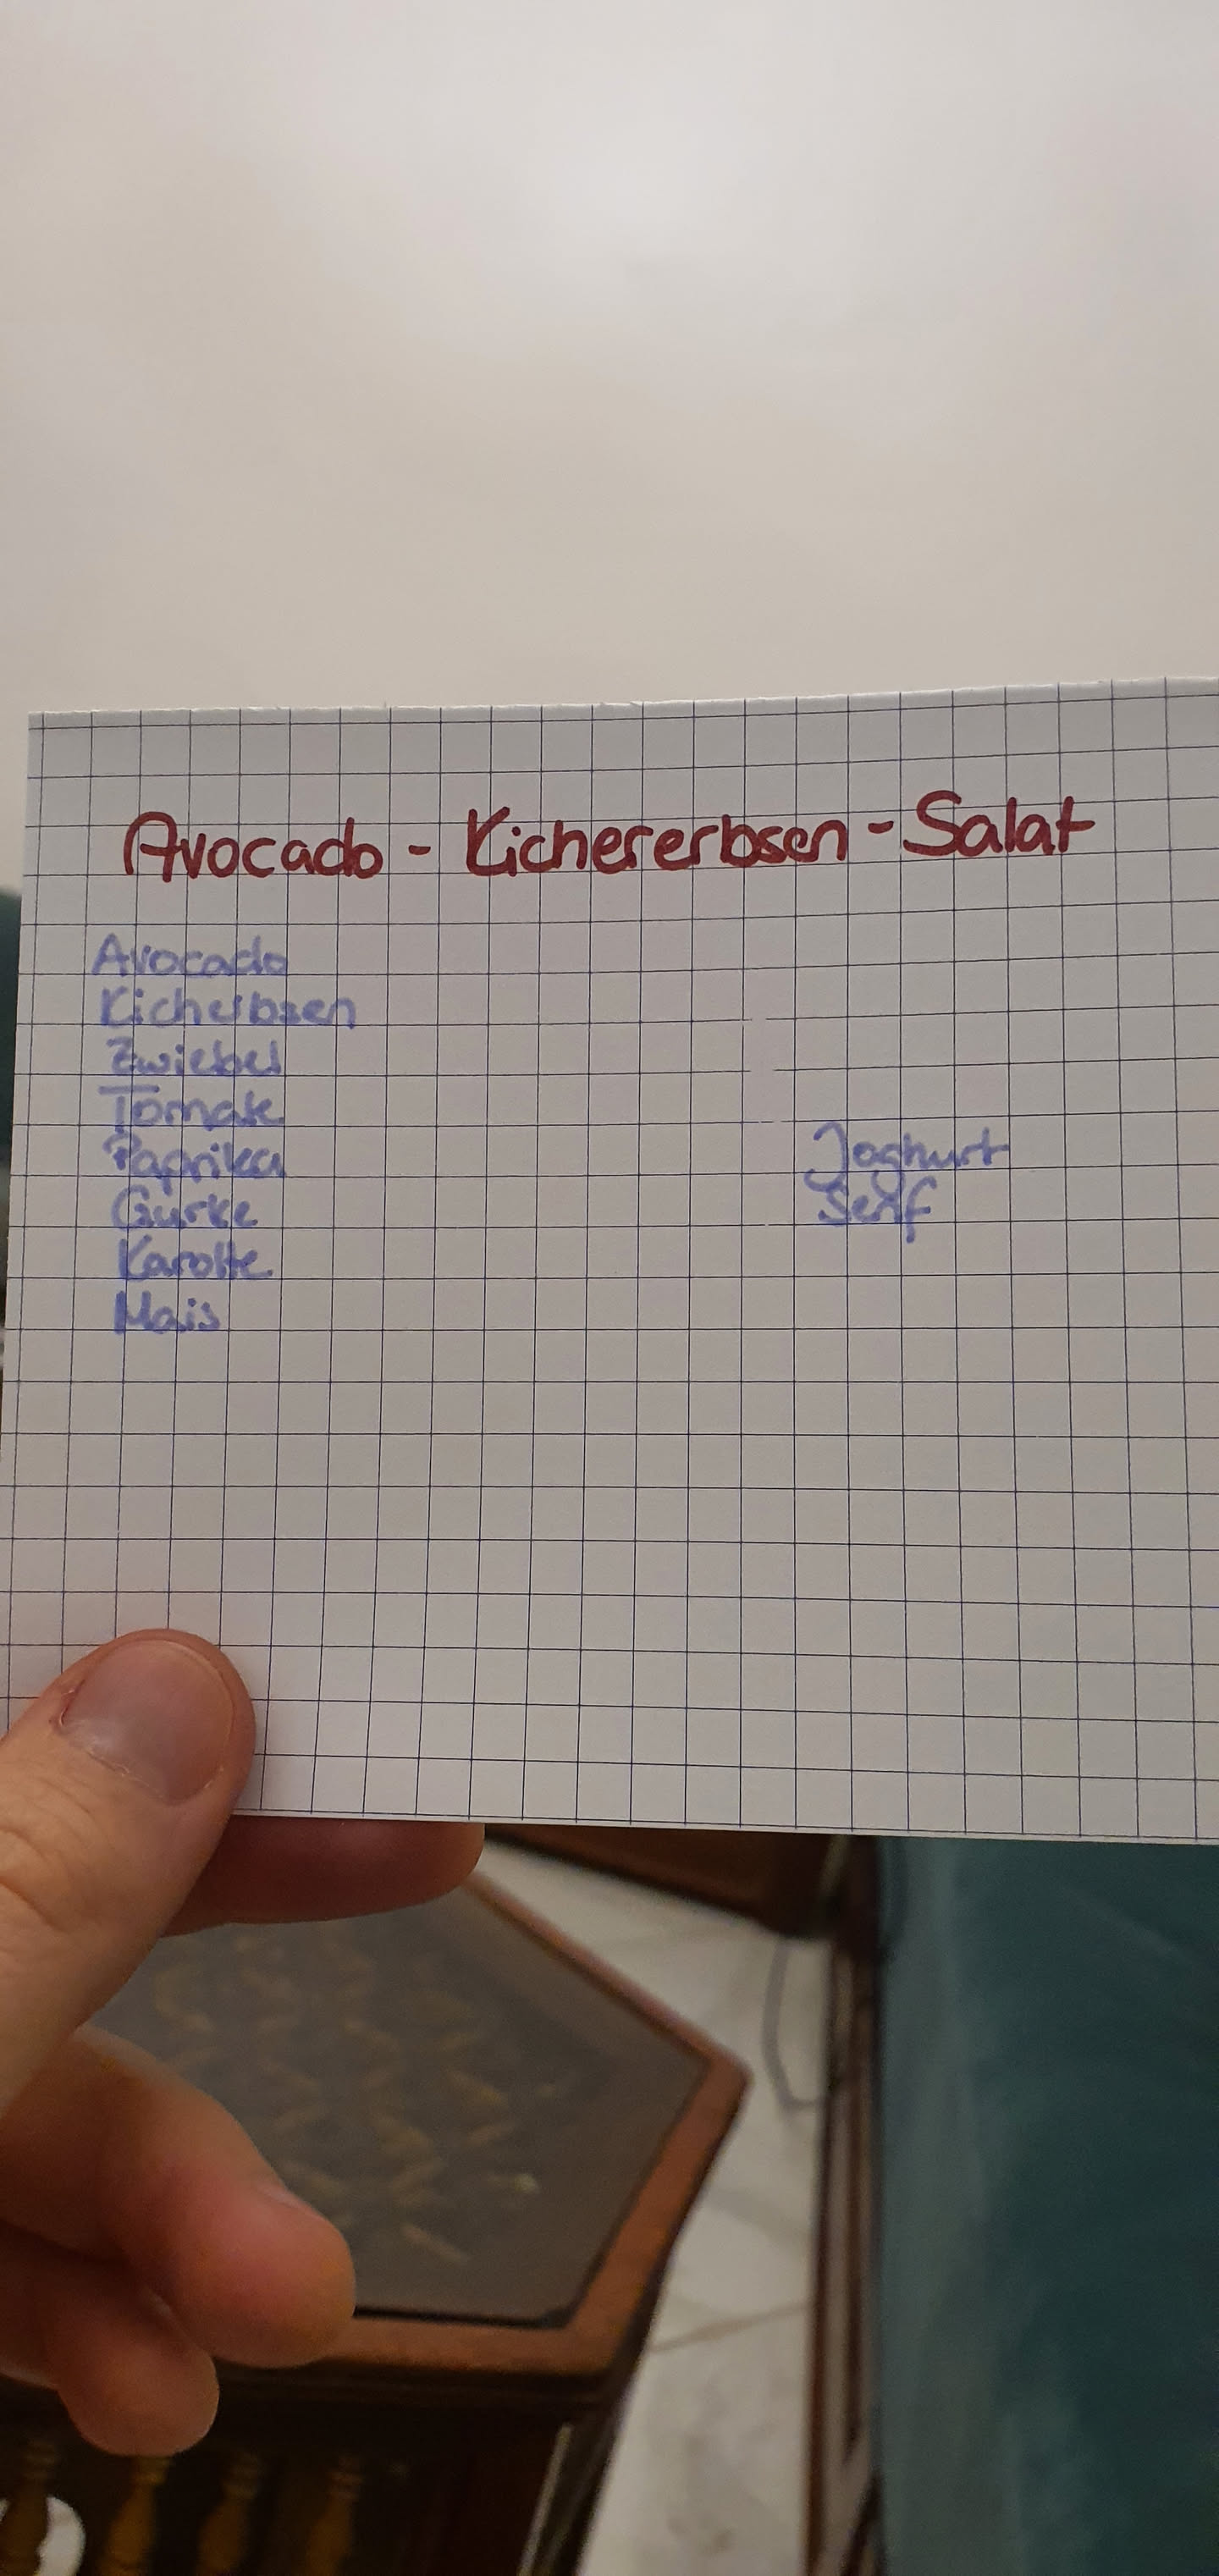 Avocado - Kichererbsen - Salat
Avocado
Kicherbsen
Zwiebel
Tomate
Paprika
Gurke
Karotte
Mais
Joghurt
Senf